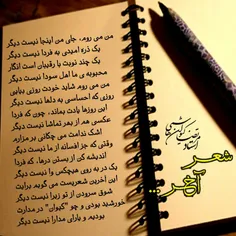 من می روم، جای من اینجا نیست دیگر
یک ذره امیدی به فردا نیست دیگر
یک چند نوبت با رقیبان است انگار
محبوبه ی ما اهل سودا نیست دیگر
من می روم شاید خودت روزی بیایی
روزی که احساسی به دلها نیست دیگر
این روزها یادت بماند، چون که فردا
عکسی هم از بعر تماشا نیست دیگر
اشک ندامت می چکانی بر مزارم
وقتی که جز افسانه از ما نیست دیگر
اندیشه کن از بستن درها، که فردا
یک در به روی هیچکس وا نیست دیگر
این آخرین شعریست می گویم برایت
شوق سرودن از تو زیرا نیست دیگر
خورشید بودی و چو "کیوان" در مدارت
بودیم و یارای مدارا نیست دیگر
شعر
آخر ...